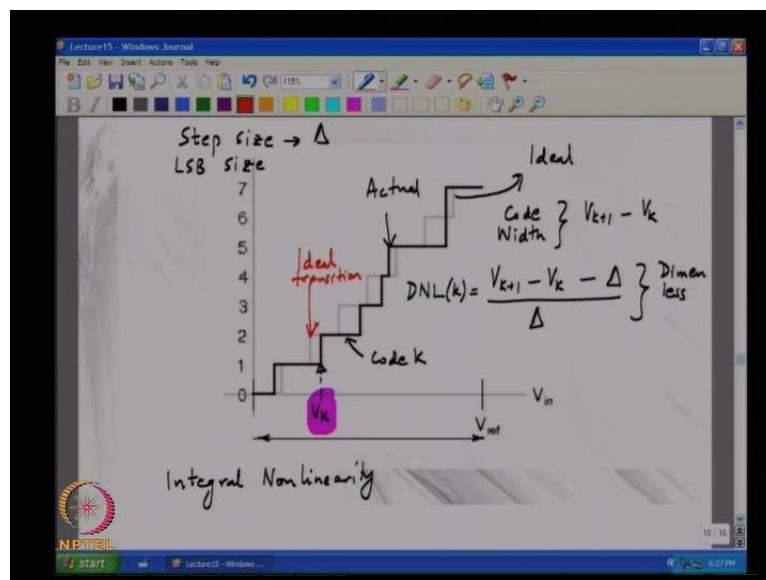 Lecture15 - Windows Journal
File Edit View Insert Actions Tools Help
115%
B I
Step size → Δ
LSB size
Ideal
Actual
Code Width } V_{k+1} - V_k
Ideal transition
DNL(k) = \frac{V_{k+1} - V_k - Δ}{Δ} } Dimen less
Code k
7
6
5
4
3
2
1
0
V_k
V_{in}
V_{ref}
Integral Nonlinearity
NPTEL
10 / 16
start
Lecture15 - Windows ...
6:27 PM